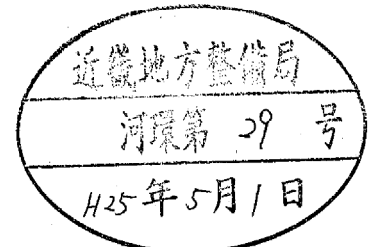 近畿地方整備局
河環第 29 号
H25年5月1日